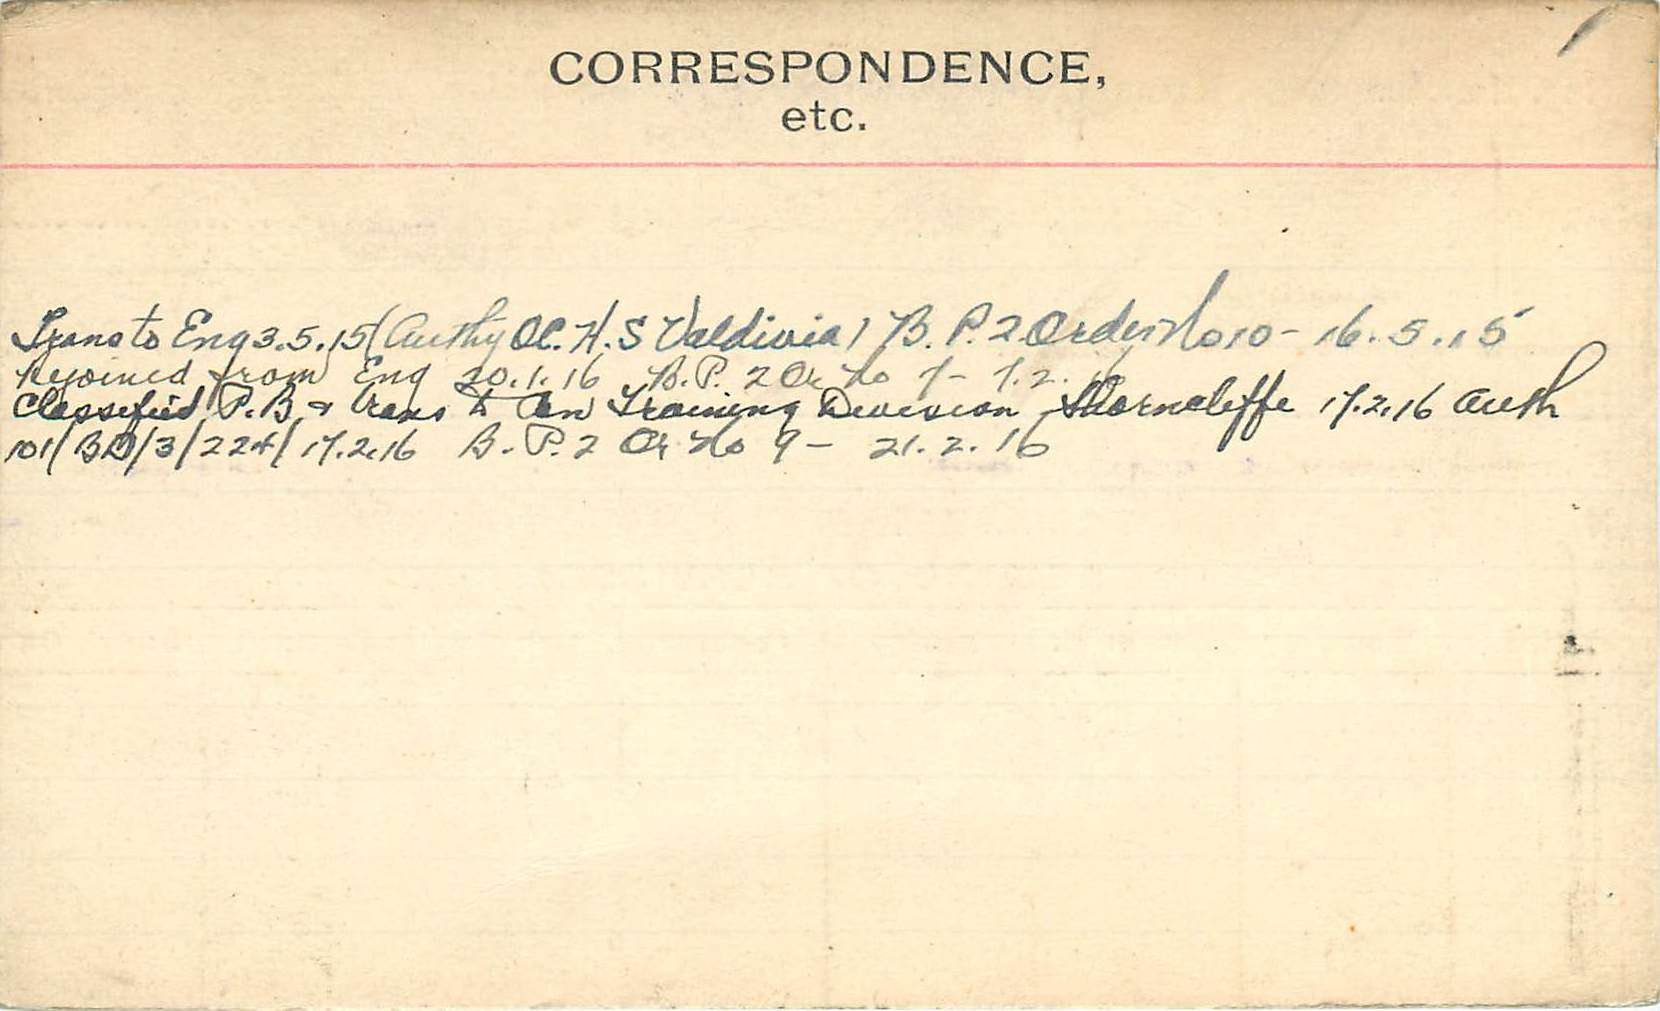 CORRESPONDENCE,
etc.
Trans to Eng 3.5.15 (Authy OC. H.S Valdivia) B.P.2 Order No 10 - 16.5.15
Rejoined from Eng 20.1.16 B.P. 2 Or No 7 - 7.2.16
Classified P.B & trans to Can Training Division Shorncliffe 17.2.16 Auth
101/BD/3/224/ 17.2.16 B.P.2 Or No 9 - 21.2.16